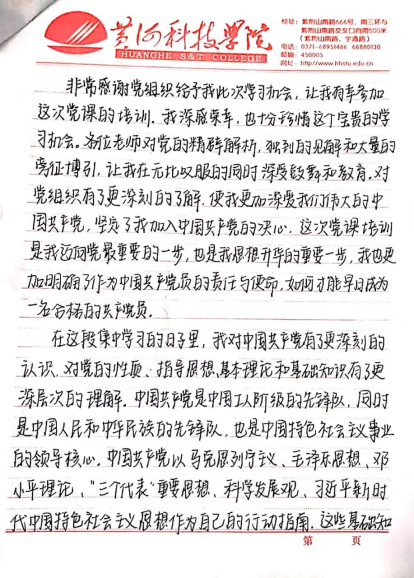 黄河科技学院
HUANGHE S&T COLLEGE
校址：紫荆山南路666号、南三环与
紫荆山南路交叉口向南500米
（紫荆山南路、宇通路）
电话：0371-68951486 68880130
邮编：450005
网址：http://www.hhstu.edu.cn
非常感谢党组织给予我此次学习机会，让我有幸参加
这次党课的培训。我深感荣幸，也十分珍惜这个宝贵的学
习机会。各位老师对党的精辟解析，独到的见解和大量的
旁征博引，让我在无比叹服的同时深受鼓舞和教育。对
党组织有了更深刻的了解，使我更加深爱我们伟大的中
国共产党，坚定了我加入中国共产党的决心。这次党课培训
是我迈向党最重要的一步，也是我思想升华的重要一步，我也更
加明确了作为中国共产党员的责任与使命，如何才能早日成为
一名合格的共产党员。
在这段集中学习的日子里，我对中国共产党有了更深刻的
认识，对党的性质、指导思想、基本理论和基础知识有了更
深层次的理解。中国共产党是中国工人阶级的先锋队，同时
是中国人民和中华民族的先锋队，也是中国特色社会主义事业
的领导核心。中国共产党以马克思列宁主义、毛泽东思想、邓
小平理论、“三个代表”重要思想、科学发展观、习近平新时
代中国特色社会主义思想作为自己的行动指南。这些基础知
第 页